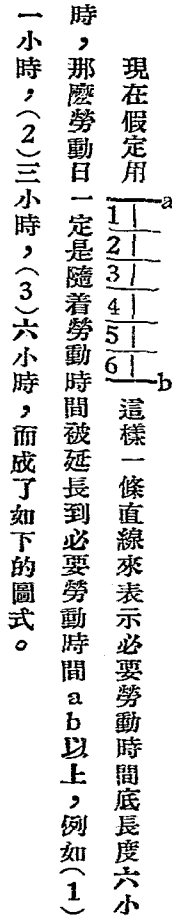 現在假定用a 1 2 3 4 5 6 b這樣一條直線來表示必要勞動時間底長度六小
時，那麼勞動日一定是隨着勞動時間被延長到必要勞動時間ab以上，例如（1）
一小時，（2）三小時，（3）六小時，而成了如下的圖式。